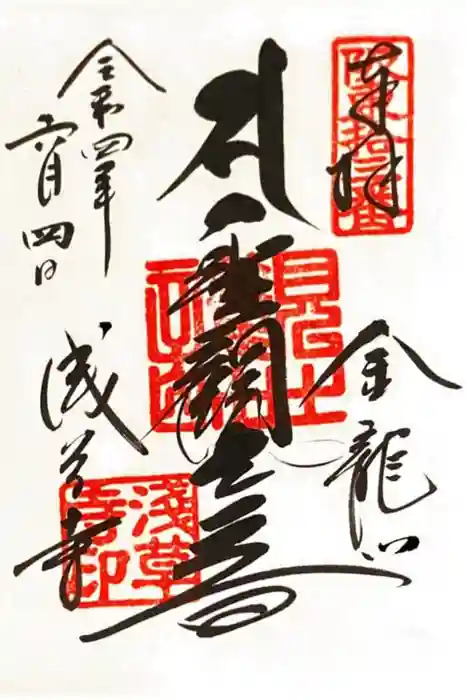 奉拝
坂東拾三番
金龍山
聖観世音
令和四年
六月四日
浅草寺
浅草寺印